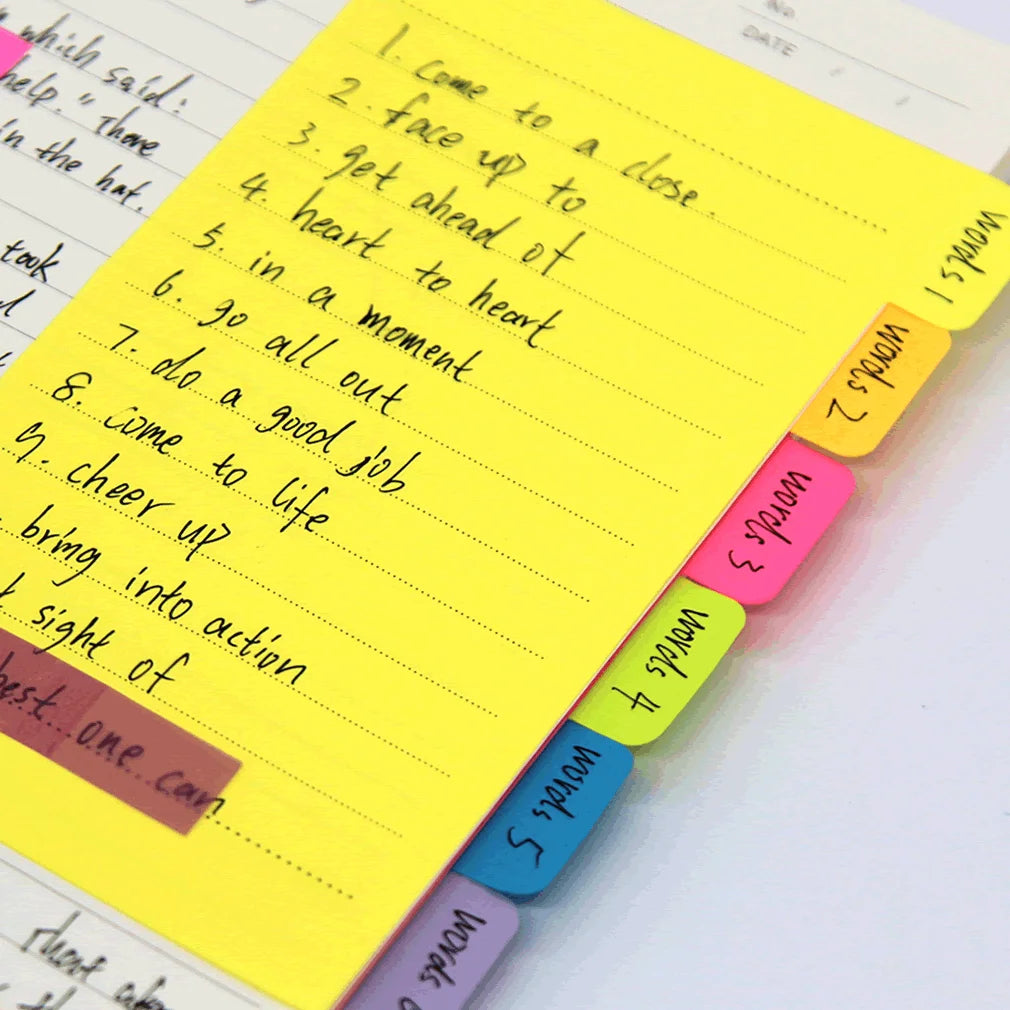 which said:
help." There
in the hat.
took
No
DATE
1. Come to a close.
2. face up to
3. get ahead of
4. heart to heart
5. in a moment
6. go all out
7. do a good job
8. come to life
9. cheer up
bring into action
sight of
best one can
words 1
words 2
words 3
words 4
words 5
words